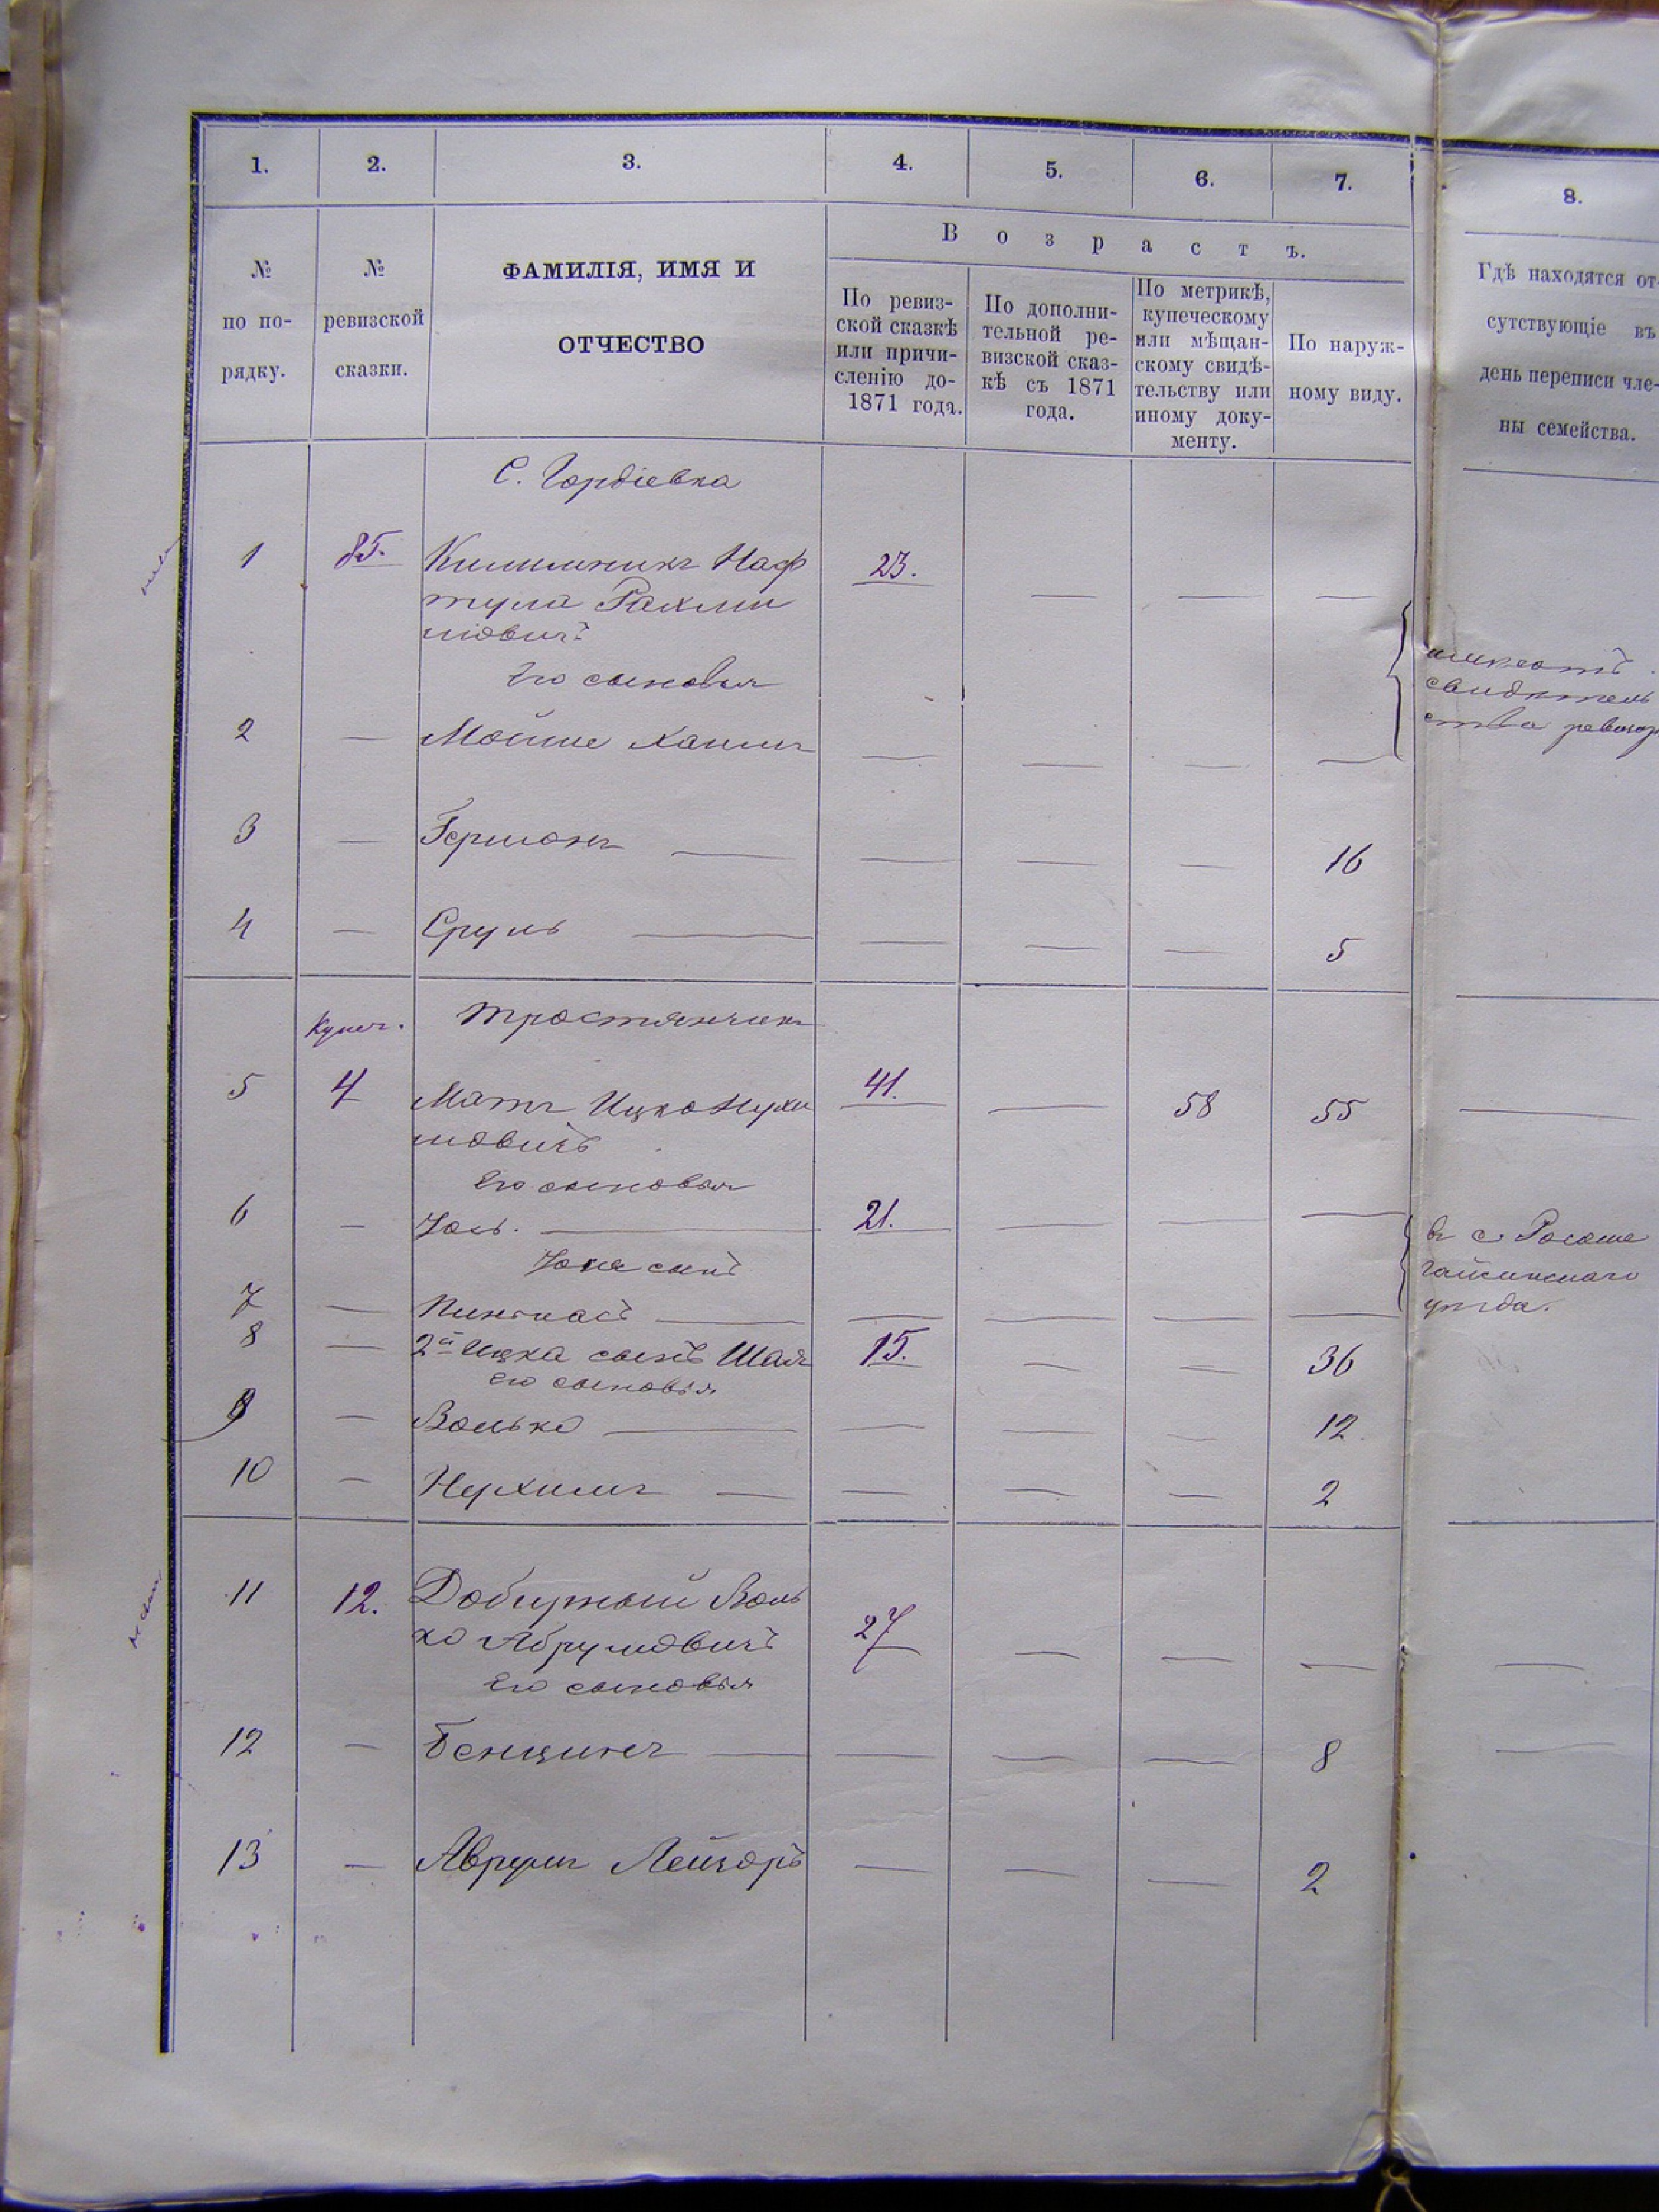 1. 2. 3. 4. 5. 6. 7. 8.
№ по по-рядку.
№ ревизской сказки.
ФАМИЛІЯ, ИМЯ И
ОТЧЕСТВО
Возрастъ.
По ревиз-
ской сказкѣ
или причи-
сленію до
1871 года.
По дополни-
тельной ре-
визской сказ-
кѣ съ 1871
года.
По метрикѣ,
купеческому
или мѣщан-
скому свидѣ-
тельству или
иному доку-
менту.
По наруж-
ному виду.
Гдѣ находятся от-
сутствующіе въ
день переписи чле-
ны семейства.
С. Гордіевка
1 85. Килимникъ Наф 23. — — —
тула Рахми
лювичъ
Его сыновья
2 — Мойше Хаимъ — — — —
имѣютъ
свидѣтель
ства
3 — Гершонъ — — — — 16
4 — Сруль — — — — 5
Купеч. Тростянчикъ
5 4 Матъ Ицко Нухи 41. — 58 55 —
мовичъ
Его сыновья
6 — Іось. — 21. — — —
Іося сынъ
7 — Пинкасъ — — — — —
въ с. Росоше
Гайсинскаго
уѣзда.
8 — 2й Ицка сынъ Шая 15. — — 36
его сыновья
9 — Волько — — — — 12
10 — Нухимъ — — — — 2
11 12. Добружый Воль 27 — — — —
ко Абрумовичъ
Его сыновья
12 — Бенционъ — — — — 8 —
13 — Аврумъ Лейзоръ — — — 2